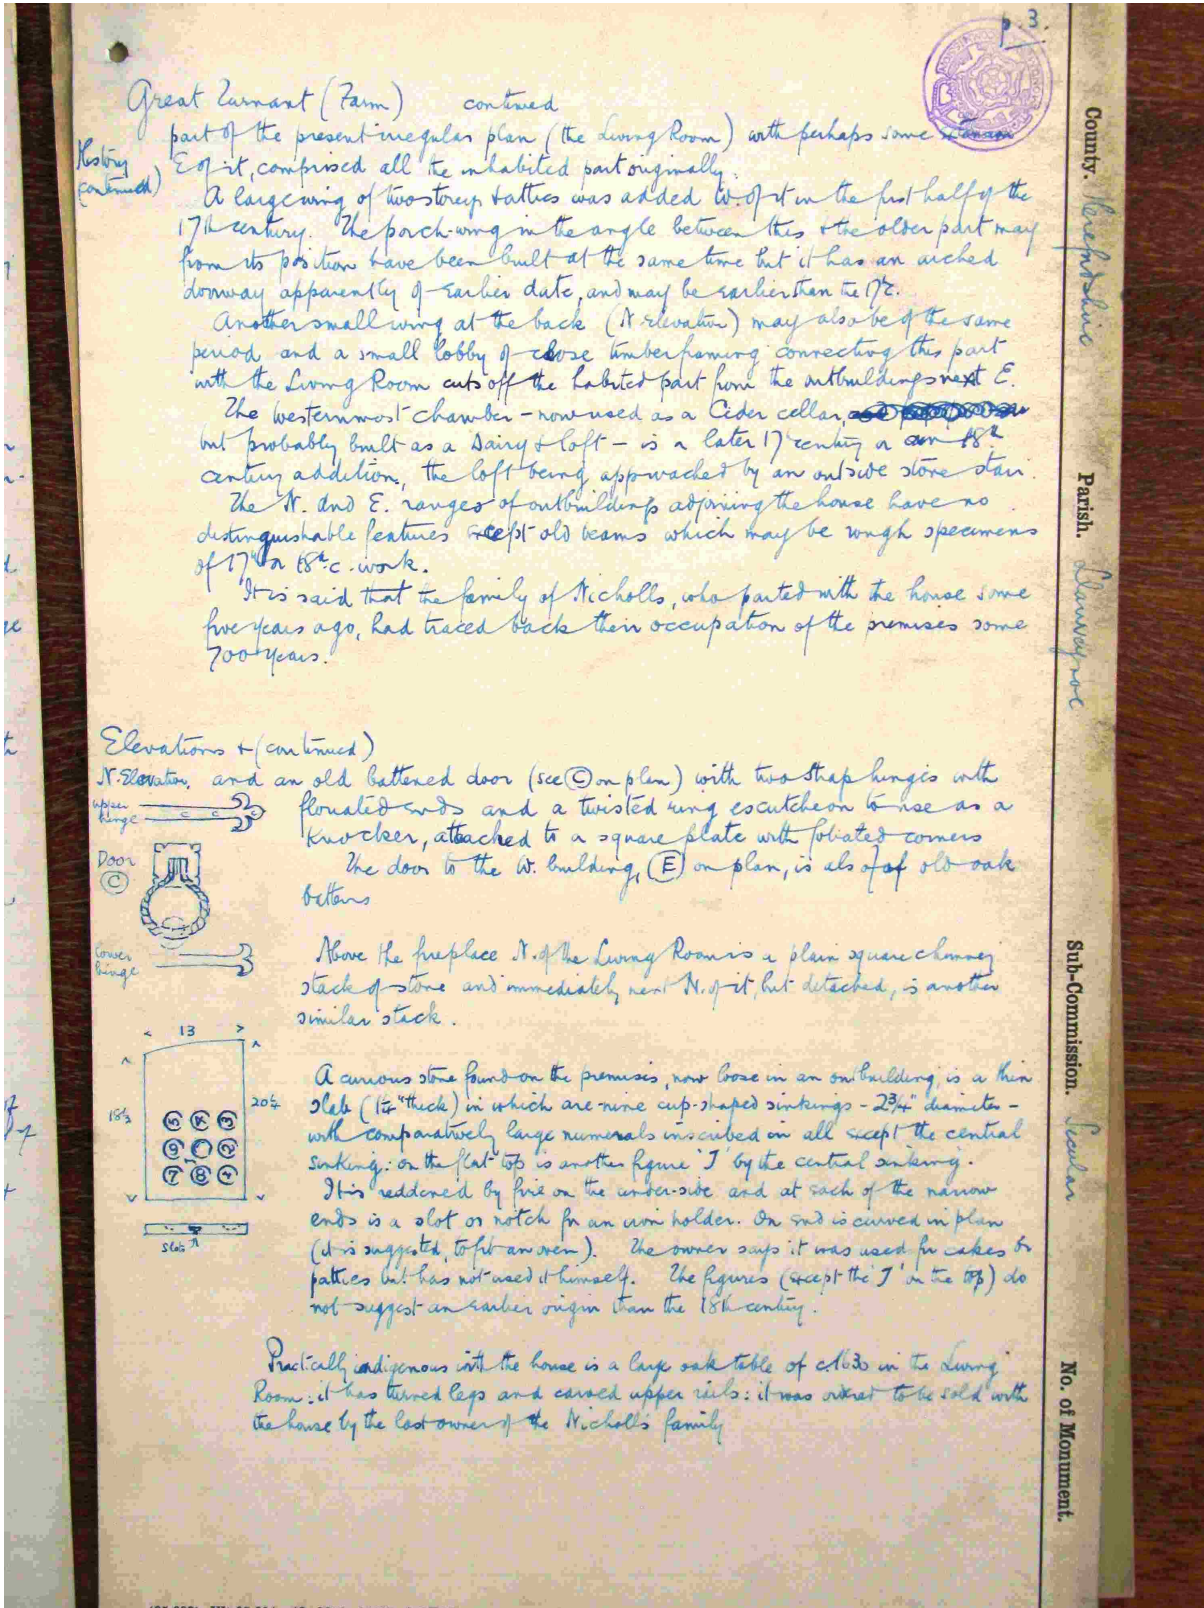 p. 3.
Great Turnant (Farm) continued
part of the present irregular plan (the Living Room) with perhaps some
History
(continued)
E of it, comprised all the inhabited part originally.
A large wing of two storeys & attics was added W. of it in the first half of the
17th century. The porch-wing in the angle between this & the older part may
from its position have been built at the same time but it has an arched
doorway apparently of earlier date, and may be earlier than the 17c.
Another small wing at the back (N. Elevation) may also be of the same
period and a small lobby of close timber framing connecting this part
with the Living Room cuts off the habited part from the outbuildings next E.
The westernmost chamber - now used as a Cider cellar,
but probably built as a Dairy & loft - is a later 17 century or an 18th
century addition, the loft being approached by an outside stone stair.
The N. and E. ranges of outbuildings adjoining the house have no
distinguishable features except old beams which may be rough specimens
of 17th or 18th c. work.
It is said that the family of Nicholls, who parted with the house some
five years ago, had traced back their occupation of the premises some
700 years.
Elevations + (continued)
N. Elevation, and an old battened door (see C on plan) with two strap hinges with
upper
hinge
floriated ends and a twisted ring escutcheon to use as a
knocker, attached to a square plate with foliated corners
Door
C
The door to the W. building, (E) on plan, is also of old oak
battens
lower
hinge
Above the fireplace N. of the Living Room is a plain square chimney
stack of stone and immediately next N. of it, but detached, is another
similar stack.
13
18½
20¼
5 4 3
9 2
7 8 1
Slots
A curious stone found on the premises, now loose in an outbuilding, is a thin
slab (1¼" thick) in which are nine cup-shaped sinkings - 2¾" diameter -
with comparatively large numerals inscribed in all except the central
sinking: on the flat top is another figure 'J' by the central sinking.
It is reddened by fire on the under-side and at each of the narrow
ends is a slot or notch for an iron holder. On end is curved in plan
(it is suggested, to fit an oven). The owner says it was used for cakes or
patties but has not used it himself. The figures (except the 'J' on the top) do
not suggest an earlier origin than the 18th century.
Practically indigenous with the house is a large oak table of c.1630 in the Living
Room: it has turned legs and carved upper rails: it was to be sold with
the house by the last owner of the Nicholls family
County. Herefordshire
Parish. Llanveynoe
Sub-Commission. Secular
No. of Monument.